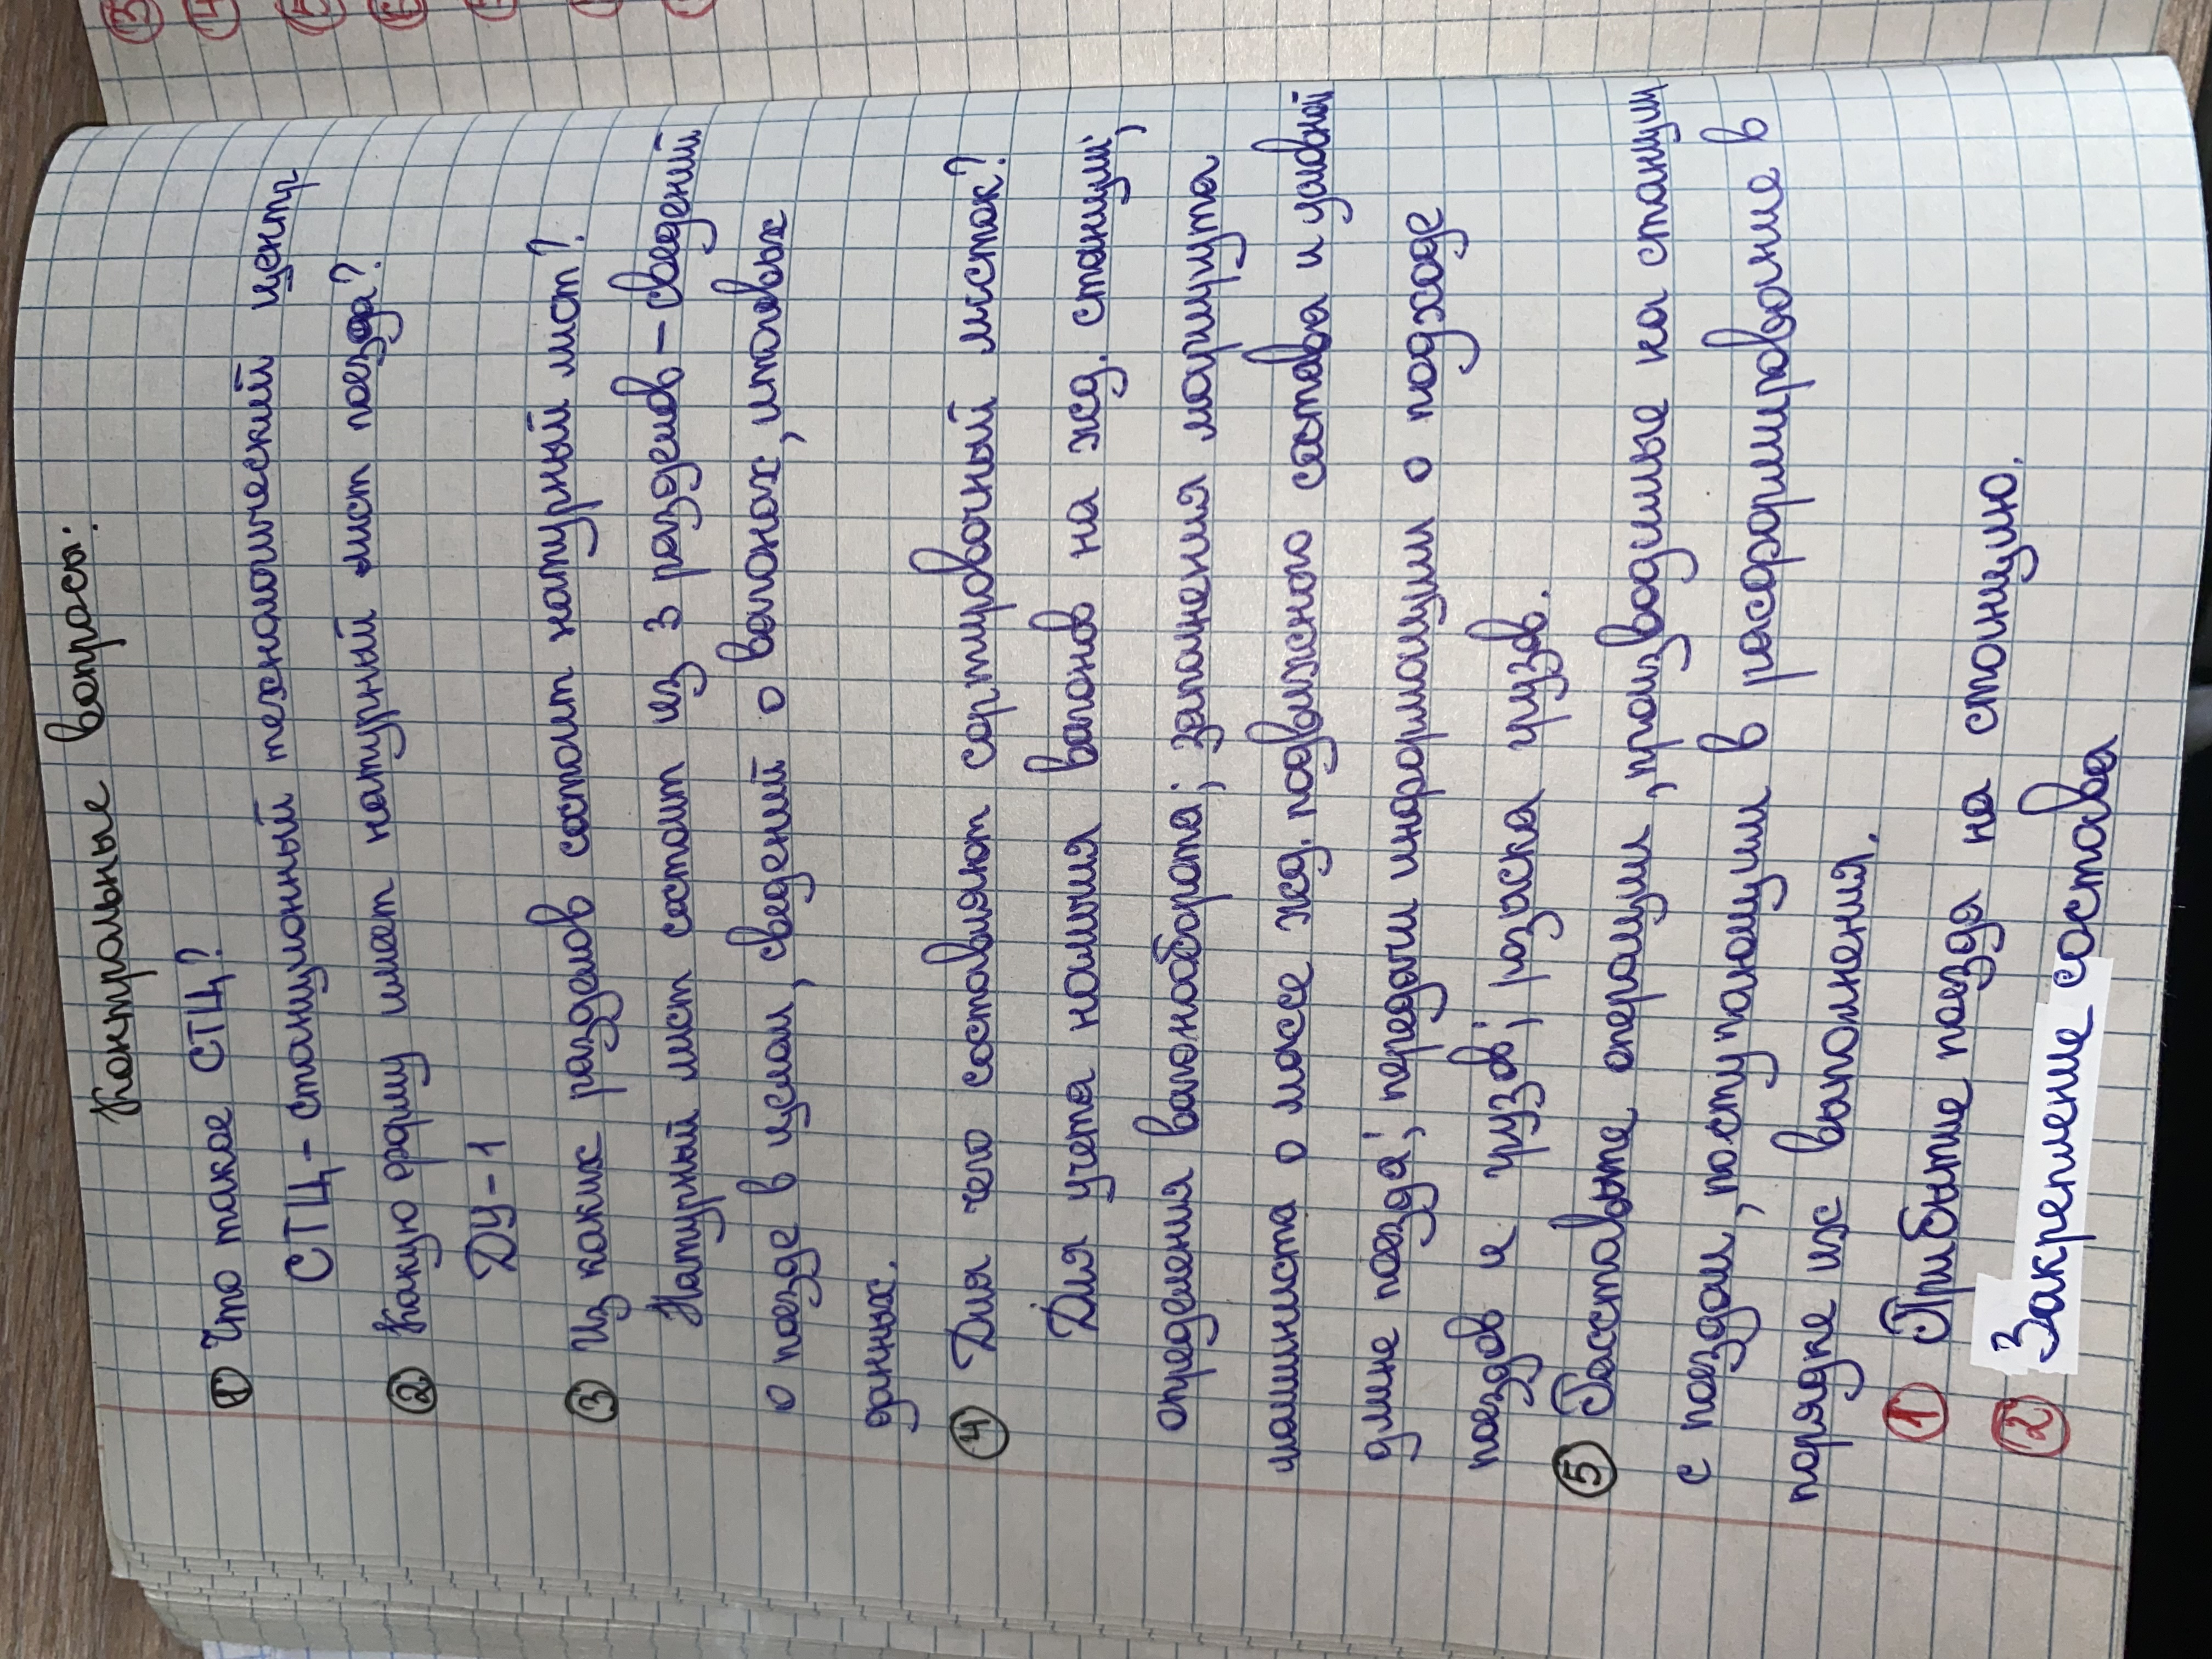 Контрольные вопросы:
① Что такое СТЦ?
СТЦ - станционный технологический центр
② Какую форму имеет натурный лист поезда?
ДУ-1
③ Из каких разделов состоит натурный лист?
Натурный лист состоит из 3 разделов - сведений
о поезде в целом, сведений о вагонах, итоговых
данных.
④ Для чего составляют сортировочный листок?
Для учета наличия вагонов на жд. станции;
определения вагонооборота; заполнения маршрута
машиниста о массе жд. подвижного состава и условной
длине поезда; передачи информации о подходе
поездов и грузов; розыска грузов.
⑤ Расставьте операции, производимые на станции
с поездом, поступающим в расформирование в
порядке их выполнения.
① Прибытие поезда на станцию.
② Закрепление состава
③
④
⑤
⑥